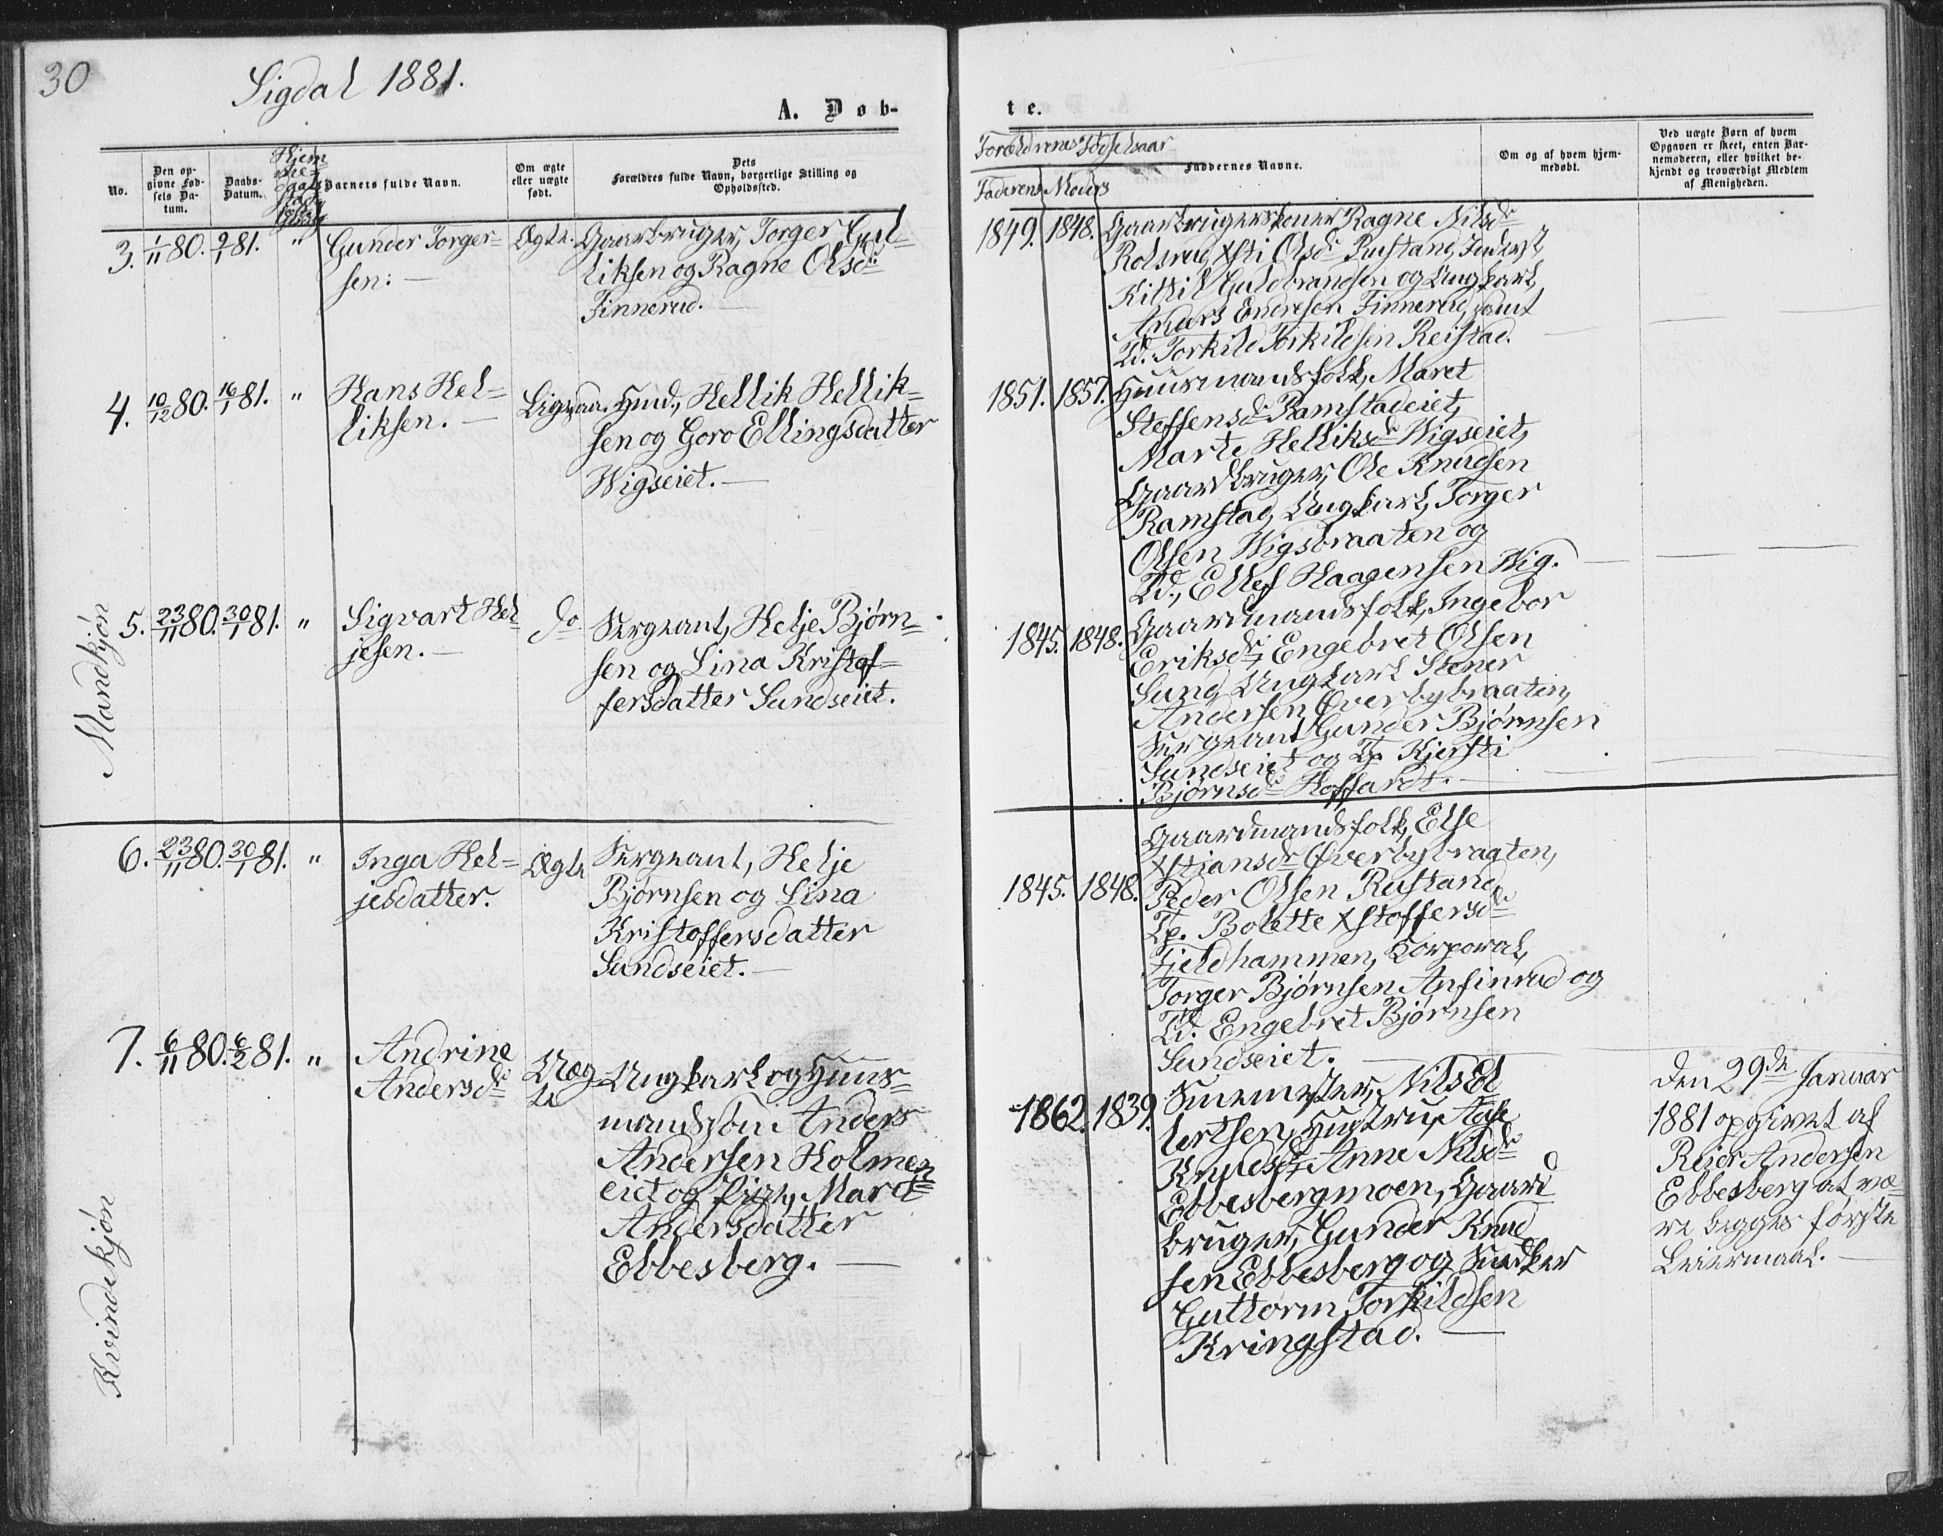 30
Sigdal 1881.
A. Døb-
te.
No.
Den op-
givne Fød-
sels Da-
tum.
Daabs-
Datum.
Hjem
Barnets fulde Navn.
Om ægte
eller uægte
født.
Dets
Forældres fulde Navn, borgerlige Stilling og
Opholdssted.
Forældrenes Fødselsaar
Faderens Moders
Faddernes Navne.
Om og af hvem hjem-
medøbt.
Ved uægte Børn af hvem
Opgaven er skeet, enten Bar-
nemoderen, eller hvilket be-
kjendt og troværdigt Medlem
af Menigheden.
Mandkjøn
3. 1/11 80. 9/1 81. "
Gunder Torger-
sen. —
Ægte.
Gaardbruger, Torger Gul-
liksen og Ragne Olsdr
Finnerud. —
1849. 1848.
Gaardbrugerskoner Ragne Nilsdr
Rolsrud, Xsti Olsdr Rustand, Inderst,
Kittil Guldbrandsen og Ungkarl,
Anders Endresen Finnerud, samt
Ld. Torkild Torkildsen Reistad.
4. 10/12 80. 16/1 81. "
Hans Hel-
liksen. —
Ligesaa.
Hmd., Hellik Hellik-
sen og Goro Ellingsdatter
Wigseiet. —
1851. 1857.
Huusmandsfolk, Maret
Steffensdr Ramstadeiet,
Marte Helliksdr Wigseiet,
Gaardbruger, Ole Knudsen
Ramstad, Ungkarl, Torger
Olsen Wigsbraaten og
Ld., Ellef Haagensen Wig.
5. 23/11 80. 30/1 81. "
Sigvart Hel-
jesen. —
do
Sergeant, Helje Bjørn-
sen og Lina Kristof-
fersdatter Sundseiet.
1845. 1848.
Gaardmandsfolk, Ingebor
Eriksdr, Engebret Olsen
Sund, Ungkarl Stener
Andersen Øverbybraaten,
Sergeant Gunder Bjørnsen
Sundseiet og Lp. Kjersti
Bjørnsdr Hoffardt. —
Kvindekjøn
6. 23/11 80. 30/1 81. "
Inga Hel-
jesdatter.
Ægte
Sergeant, Helje
Bjørnsen og Lina
Kristoffersdatter
Sundseiet. —
1845. 1848.
Gaardmandsfolk, Else
Xstiansdr Øverbybraaten,
Peder Olsen Rustand,
Lp. Bolette Xstoffersdr
Fjeldhammen, Korporal,
Torger Bjørnsen Anfinrud og
Ld. Engebret Bjørnsen
Sundseiet. —
7. 6/11 80. 6/2 81. "
Andrine
Andersdr
Uæg-
te
Ungkarl og Huus-
mandssøn Anders
Andersen Holmen-
eiet og Pige, Maret
Andersdatter
Ebbesberg. —
1862. 1839.
Nils El
lertsen, Hustru, Aase
Knudsdr, Anne Nilsdr
Ebbesbergmoen, Gaard
bruger, Gunder Knud
sen Ebbesberg og Snedker
Guttorm Torkildsen
Kringstad. —
Den 29de Januar
1881 opgivet af
Reier Andersen
Ebbesberg at væ-
re begges første
Leiermaal. —